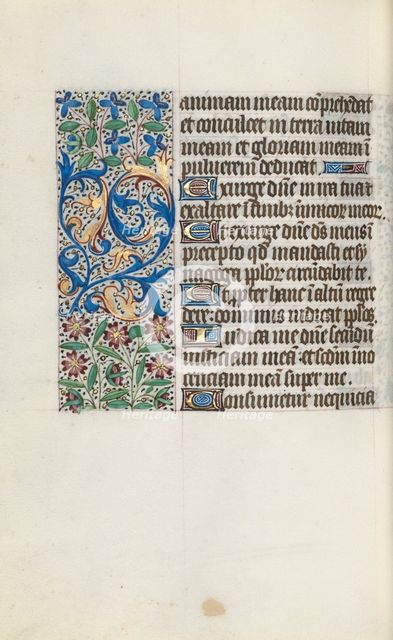 animam meam cōprehēdat
et conculcet in terra vitam
meam et gloriam meam ī
pulverem deducat
Exurge dn̄e in ira tua et
exaltare ī finib; inimicor meor.
Et exurge dn̄e ds̄ meus ī
precepto qd̄ mandasti et sy
nagoga pplor̄ circūdabit te.
Et ppter hanc ī altū regre
dere: dominus iudicat pplos.
Iudica me dn̄e secūdū
iusticiam meā et scdm̄ ino
cenciam meā super me.
Consumetur nequicia
heritage
Heritage